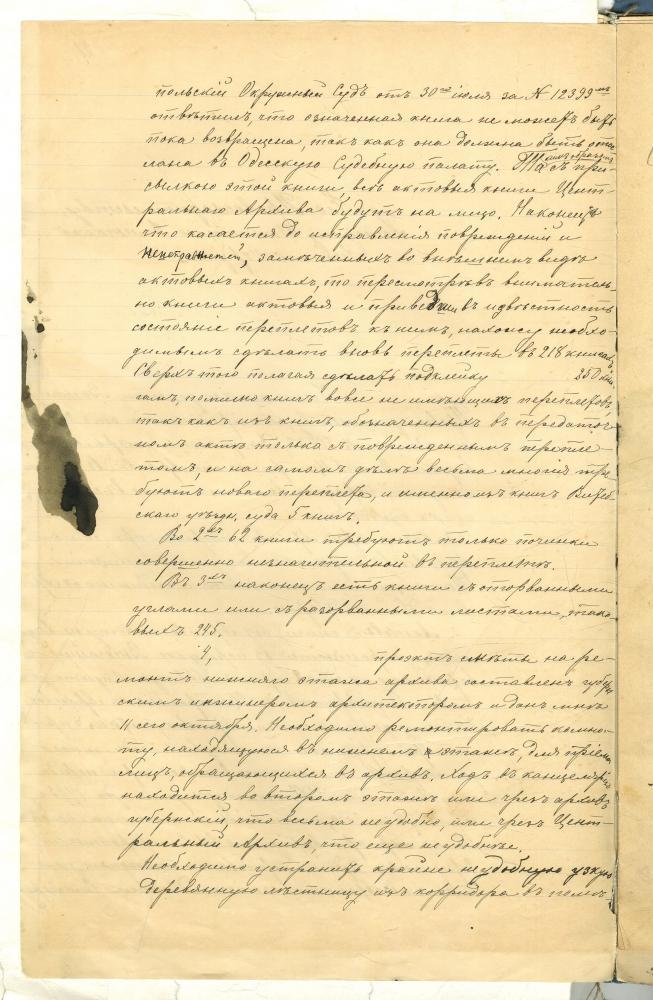 польскій Окружный Судъ отъ 30го іюля за № 12399мъ
отвѣтилъ, что означенная книга не можетъ быть
тока возвращена, такъ какъ она должна быть отос
лана въ Одесскую Судебную палату. съ при
сылкою этой книги, всѣ актовыя книги Цент
ральнаго Архива будутъ на лицо. Наконецъ
что касается до исправленія поврежденій и
неисправностей, замѣченныхъ во внѣшнемъ видѣ
актовыхъ книгахъ, то пересмотрѣвъ вниматель
но книги актовыя и приведши въ извѣстность
состояніе переплетовъ къ нимъ, нахожу необхо-
димымъ сдѣлать вновь переплеты въ 218 книгахъ.
Сверхъ того полагая сдѣлать подклейку 350 кни
гамъ, помимо книгъ вовсе не имѣющихъ переплетовъ
такъ какъ изъ книгъ, обозначенныхъ въ передаточ
номъ актѣ только съ поврежденнымъ перепле-
томъ, и на самомъ дѣлѣ весьма многія тре
буютъ новаго переплета, и именно изъ книгъ Витеб
скаго уѣздн. суда 5 книгъ.
Во 2хъ 62 книги требуютъ только починки
совершенно незначительной въ переплетѣ.
Въ 3хъ наконецъ есть книги съ оторванными
углами или съ разорванными листами, тако
выхъ 245.
4, проэктъ смѣты на ре-
монтъ нижняго этажа архива составленъ губерн
скимъ инженеромъ архитекторомъ и данъ мнѣ
11 сего октября. Необходимо ремонтировать комна-
ту, находящуюся въ нижнемъ этажѣ, для пріема
лицъ, обращающихся въ архивъ. Ходъ въ канцелярію
находится во второмъ этажѣ или чрезъ архивъ
губернскій, что весьма неудобно, или чрезъ Цент-
ральный Архивъ, что еще неудобнѣе.
Необходимо устранить крайне неудобную узкую
деревянную лѣстницу изъ корридора въ помѣ-